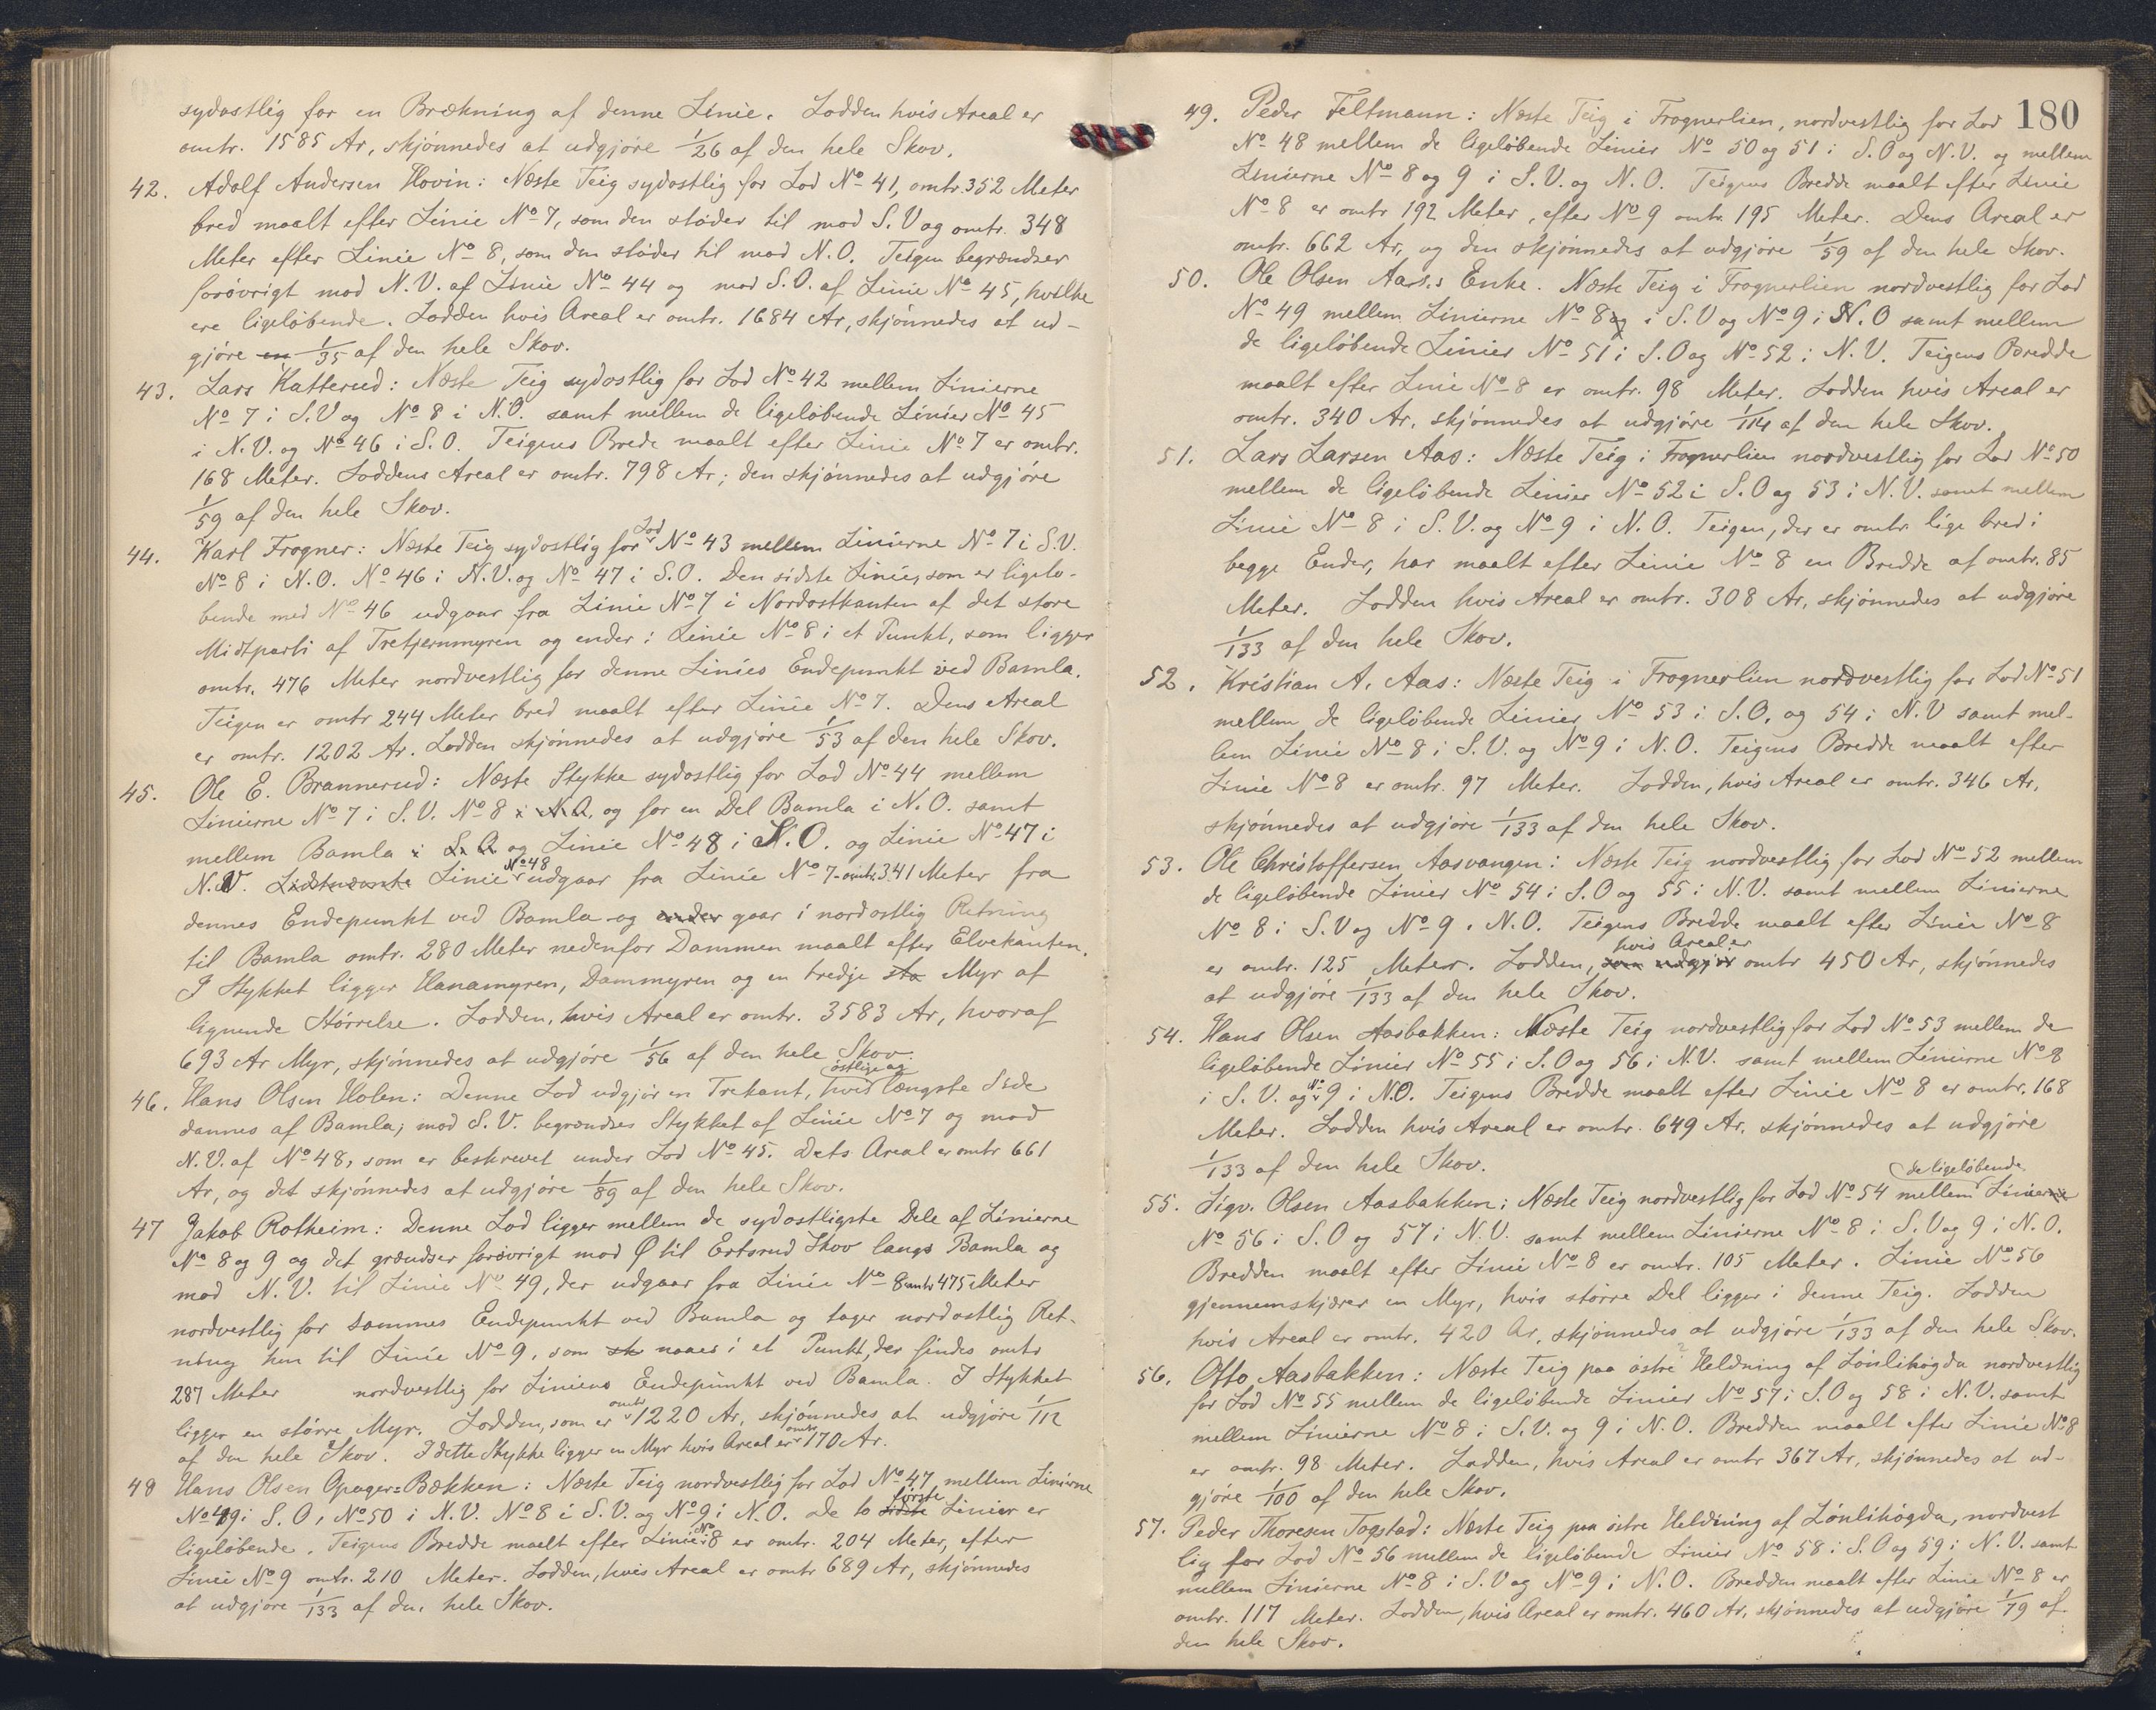 sydostlig for en Brækning af denne Linie. Lodden hvis Areal er
omtr. 1585 Ar, skjønnedes at udgjøre 1/26 af den hele Skov.
42. Adolf Andersen Hovin: Næste Teig sydostlig for Lod No 41, omtr. 352 Meter
bred maalt efter Linie No 7, som den støder til mod S.V og omtr. 348
Meter efter Linie No 8, som den støder til mod N.O. Teigen begrændses
forøvrigt mod N.V. af Linie No 44 og mod S.O. af Linie No 45, hvilke
ere ligeløbende. Lodden hvis Areal er omtr. 1684 Ar, skjønnedes at ud-
gjøre en 1/35 af den hele Skov.
43. Lars Katterud: Næste Teig sydostlig for Lod No 42 mellem Linierne
No 7 i S.V og No 8 i N.O. samt mellem de ligeløbende Linier No 45
i N.V. og No 46 i S.O. Teigens Brede maalt efter Linie No 7 er omtr.
168 Meter. Loddens Areal er omtr. 798 Ar; den skjønnedes at udgjøre
1/59 af den hele Skov.
44. Karl Frogner: Næste Teig sydostlig for Lod No 43 mellem Linierne No 7 i S.V.
No 8 i N.O. No 46 i N.V. og No 47 i S.O. Den sidste Linie, som er ligelø-
bende med No 46 udgaar fra Linie No 7 i Nordostkanten af det store
Midtparti af Tretjernmyren og ender i Linie No 8 i et Punkt, som ligger
omtr. 476 Meter nordvestlig for denne Linies Endepunkt ved Bamla.
Teigen er omtr 244 Meter bred maalt efter Linie No 7. Dens Areal
er omtr. 1202 Ar. Lodden skjønnedes at udgjøre 1/53 af den hele Skov.
45. Ole E. Brannerud: Næste Stykke sydostlig for Lod No 44 mellem
Linierne No 7 i S.V. No 8 i N.O. og for en Del Bamla i N.O. samt
mellem Bamla i S.O og Linie No 48 i S.O. og Linie No 47 i
N.V. Sidstnævnte Linie No 48 udgaar fra Linie No 7 omtr. 341 Meter fra
dennes Endepunkt ved Bamla og ender gaar i nordostlig Retning
til Bamla omtr. 280 Meter nedenfor Dammen maalt efter Elvekanten.
I Stykket ligger Hanamyren, Dammyren og en tredje sto Myr af
lignende Størrelse. Lodden, hvis Areal er omtr. 3583 Ar, hvoraf
693 Ar Myr, skjønnedes at udgjøre 1/56 af den hele Skov.
46. Hans Olsen Holen: Denne Lod udgjør en Trekant, hvis østlige og længste Side
dannes af Bamla; mod S.V. begrændses Stykket af Linie No 7 og mod
N.V. af No 48, som er beskrevet under Lod No 45. Dets Areal er omtr 661
Ar, og det skjønnedes at udgjøre 1/89 af den hele Skov.
47 Jakob Rotheim: Denne Lod ligger mellem de sydostligste Dele af Linierne
No 8 og 9 og det grændser forøvrigt mod Ø til Ertsrud Skov langs Bamla og
mod N.V. til Linie No 49, der udgaar fra Linie No 8 omtr 475 Meter
nordvestlig for sammes Endepunkt ved Bamla og tager nordostlig Ret-
ning hen til Linie No 9, som sk naaes i et Punkt, der findes omtr
287 Meter nordvestlig for Liniens Endepunkt ved Bamla. I Stykket
ligger en større Myr. Lodden, som er omtr 1220 Ar, skjønnedes at udgjøre 1/112
af den hele Skov. I dette Stykke ligger en Myr hvis Areal er omtr 170 Ar.
48 Hans Olsen Opager=Bækken: Næste Teig nordvestlig for Lod No 47 mellem Linierne
No 49 i S.O, No 50 i N.V. No 8 i S.V. og No 9 i N.O. De to sidste første Linier er
ligeløbende. Teigens Bredde maalt efter Linie No 8 er omtr. 204 Meter, efter
Linie No 9 omtr. 210 Meter. Lodden, hvis Areal er omtr 689 Ar, skjønnedes
at udgjøre 1/133 af den hele Skov.
180
49. Peder Feltmann: Næste Teig i Frognerlien, nordvestlig for Lod
No 48 mellem de ligeløbende Linier No 50 og 51 i S.O og N.V. og mellem
Linierne No 8 og 9 i S.V. og N.O. Teigens Bredde maalt efter Linie
No 8 er omtr 192 Meter, efter No 9 omtr. 195 Meter. Dens Areal er
omtr. 662 Ar, og den skjønnedes at udgjøre 1/59 af den hele Skov.
50. Ole Olsen Aas.s Enke. Næste Teig i Frognerlien nordvestlig for Lod
No 49 mellem Linierne No 8 og i S.V og No 9 i N.O samt mellem
de ligeløbende Linier No 51 i S.O og No 52 i N.V. Teigens Bredde
maalt efter Linie No 8 er omtr. 98 Meter. Lodden hvis Areal er
omtr. 340 Ar, skjønnedes at udgjøre 1/114 af den hele Skov.
51. Lars Larsen Aas: Næste Teig i Frognerlien nordvestlig for Lod No 50
mellem de ligeløbende Linier No 52 i S.O og 53 i N.V. samt mellem
Linie No 8 i S.V. og No 9 i N.O. Teigen, der er omtr. lige bred i
begge Ender, har maalt efter Linie No 8 en Bredde af omtr. 85
Meter. Lodden hvis Areal er omtr. 308 Ar, skjønnedes at udgjøre
1/133 af den hele Skov.
52. Kristian A. Aas: Næste Teig i Frognerlien nordvestlig for Lod No 51
mellem de ligeløbende Linier No 53 i S.O, og 54 i N.V samt mel-
lem Linie No 8 i S.V. og No 9 i N.O. Teigens Bredde maalt efter
Linie No 8 er omtr. 97 Meter. Lodden, hvis Areal er omtr. 346 Ar,
skjønnedes at udgjøre 1/133 af den hele Skov.
53. Ole Christoffersen Aasvangen: Næste Teig nordvestlig for Lod No 52 mellem
de ligeløbende Linier No 54 i S.O og 55 i N.V. samt mellem Linierne
No 8 i S.V og No 9 i N.O. Teigens Bredde maalt efter Linie No 8
er omtr. 125 Meter. Lodden, som udgjør hvis Areal er omtr 450 Ar, skjønnedes
at udgjøre 1/133 af den hele Skov.
54. Hans Olsen Aasbakken: Næste Teig nordvestlig for Lod No 53 mellem de
ligeløbende Linier No 55 i S.O og 56 i N.V. samt mellem Linierne No 8
i S.V. og No 9 i N.O. Teigens Bredde maalt efter Linie No 8 er omtr. 168
Meter. Lodden hvis Areal er omtr. 649 Ar, skjønnedes at udgjøre
1/133 af den hele Skov.
55. Sigv. Olsen Aasbakken: Næste Teig nordvestlig for Lod No 54 mellem de ligeløbende Linierne
No 56 i S.O og 57 i N.V. samt mellem Linierne No 8 i S.V og 9 i N.O.
Bredden maalt efter Linie No 8 er omtr. 105 Meter. Linie No 56
gjennemskjærer en Myr, hvis større Del ligger i denne Teig. Lodden
hvis Areal er omtr. 420 Ar, skjønnedes at udgjøre 1/133 af den hele Skov.
56. Otto Aasbakken: Næste Teig paa østre Heldning af Lønlihøgda nordvestlig
for Lod No 55 mellem de ligeløbende Linier No 57 i S.O og 58 i N.V. samt
mellem Linierne No 8 i S.V. og 9 i N.O. Bredden maalt efter Linie No 8
er omtr. 98 Meter. Lodden, hvis Areal er omtr 367 Ar, skjønnedes at ud-
gjøre 1/100 af den hele Skov.
57. Peder Thoresen Togstad: Næste Teig paa østre Heldning af Lønlihøgda, nordvest
lig for Lod No 56 mellem de ligeløbende Linier No 58 i S.O og 59 i N.V. samt
mellem Linierne No 8 i S.V og No 9 i N.O. Bredden maalt efter Linie No 8 er
omtr. 117 Meter. Lodden, hvis Areal er omtr. 460 Ar, skjønnedes at udgjøre 1/79 af
den hele Skov.